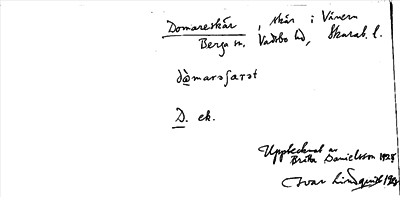 Domareskär, skär i Vänern
Berga sn, Vadsbo hd, Skarab. l.
dòmarəʃærət
D. ek.
Upptecknat av
Brita Danielsson 1928
Ivar Lindquist 1928